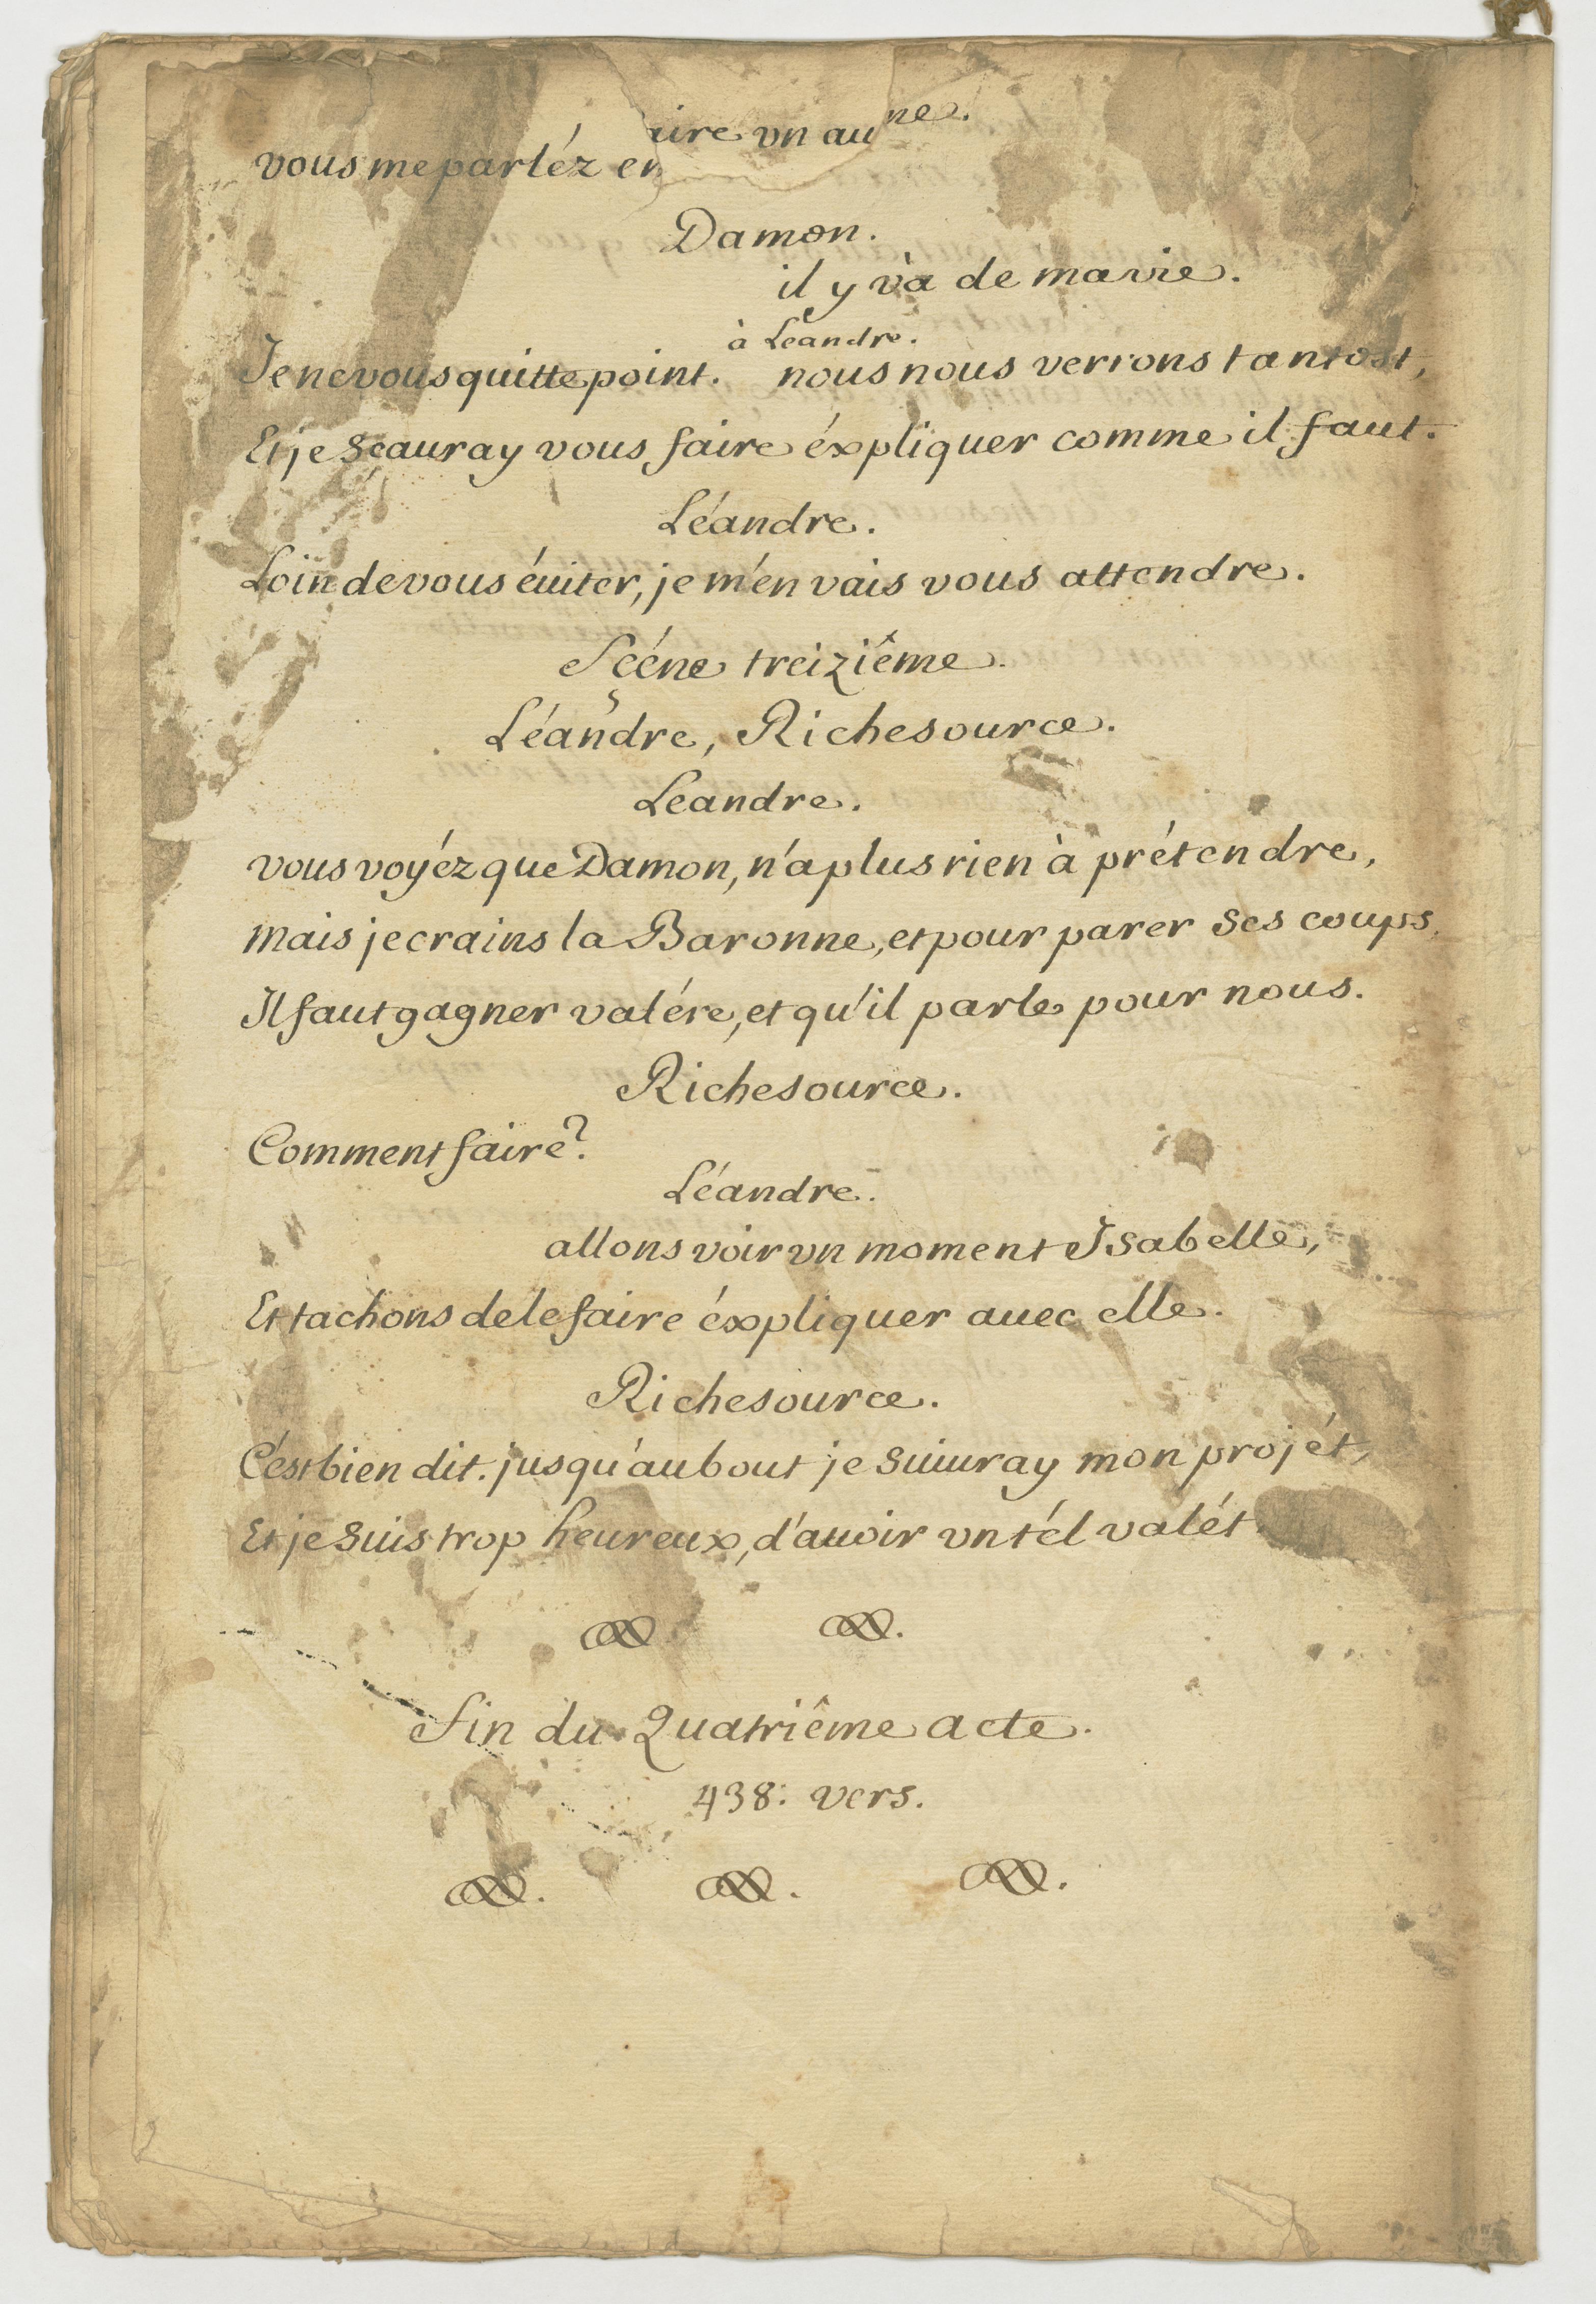 aire vn au ne.
vous me parléz en
Damon.
il y và de ma vie.
à Léandre.
Je ne vous quitte point. nous nous verrons tantost,
Et je Scauray vous faire éxpliquer comme il faut.
Léandre.
Loin de vous éuiter, je m'en vais vous attendre.
Scéne treiziême.
Léandre, Richesource.
Leandre.
vous voyéz que Damon, n'a plus rien à prétendre,
mais je crains la Baronne, et pour parer Ses coups,
Il faut gagner valére, et qu'il parle pour nous.
Richesource.
Comment faire?
Léandre.
allons voir vn moment Isabelle,
Et tachons de le faire éxpliquer auec elle.
Richesource.
C'ést bien dit. jusqu'au bout je Suiuray mon projét,
Et je Suis trop heureux, d'auoir vn tél valét.
fin du Quatriême acte.
438: vers.